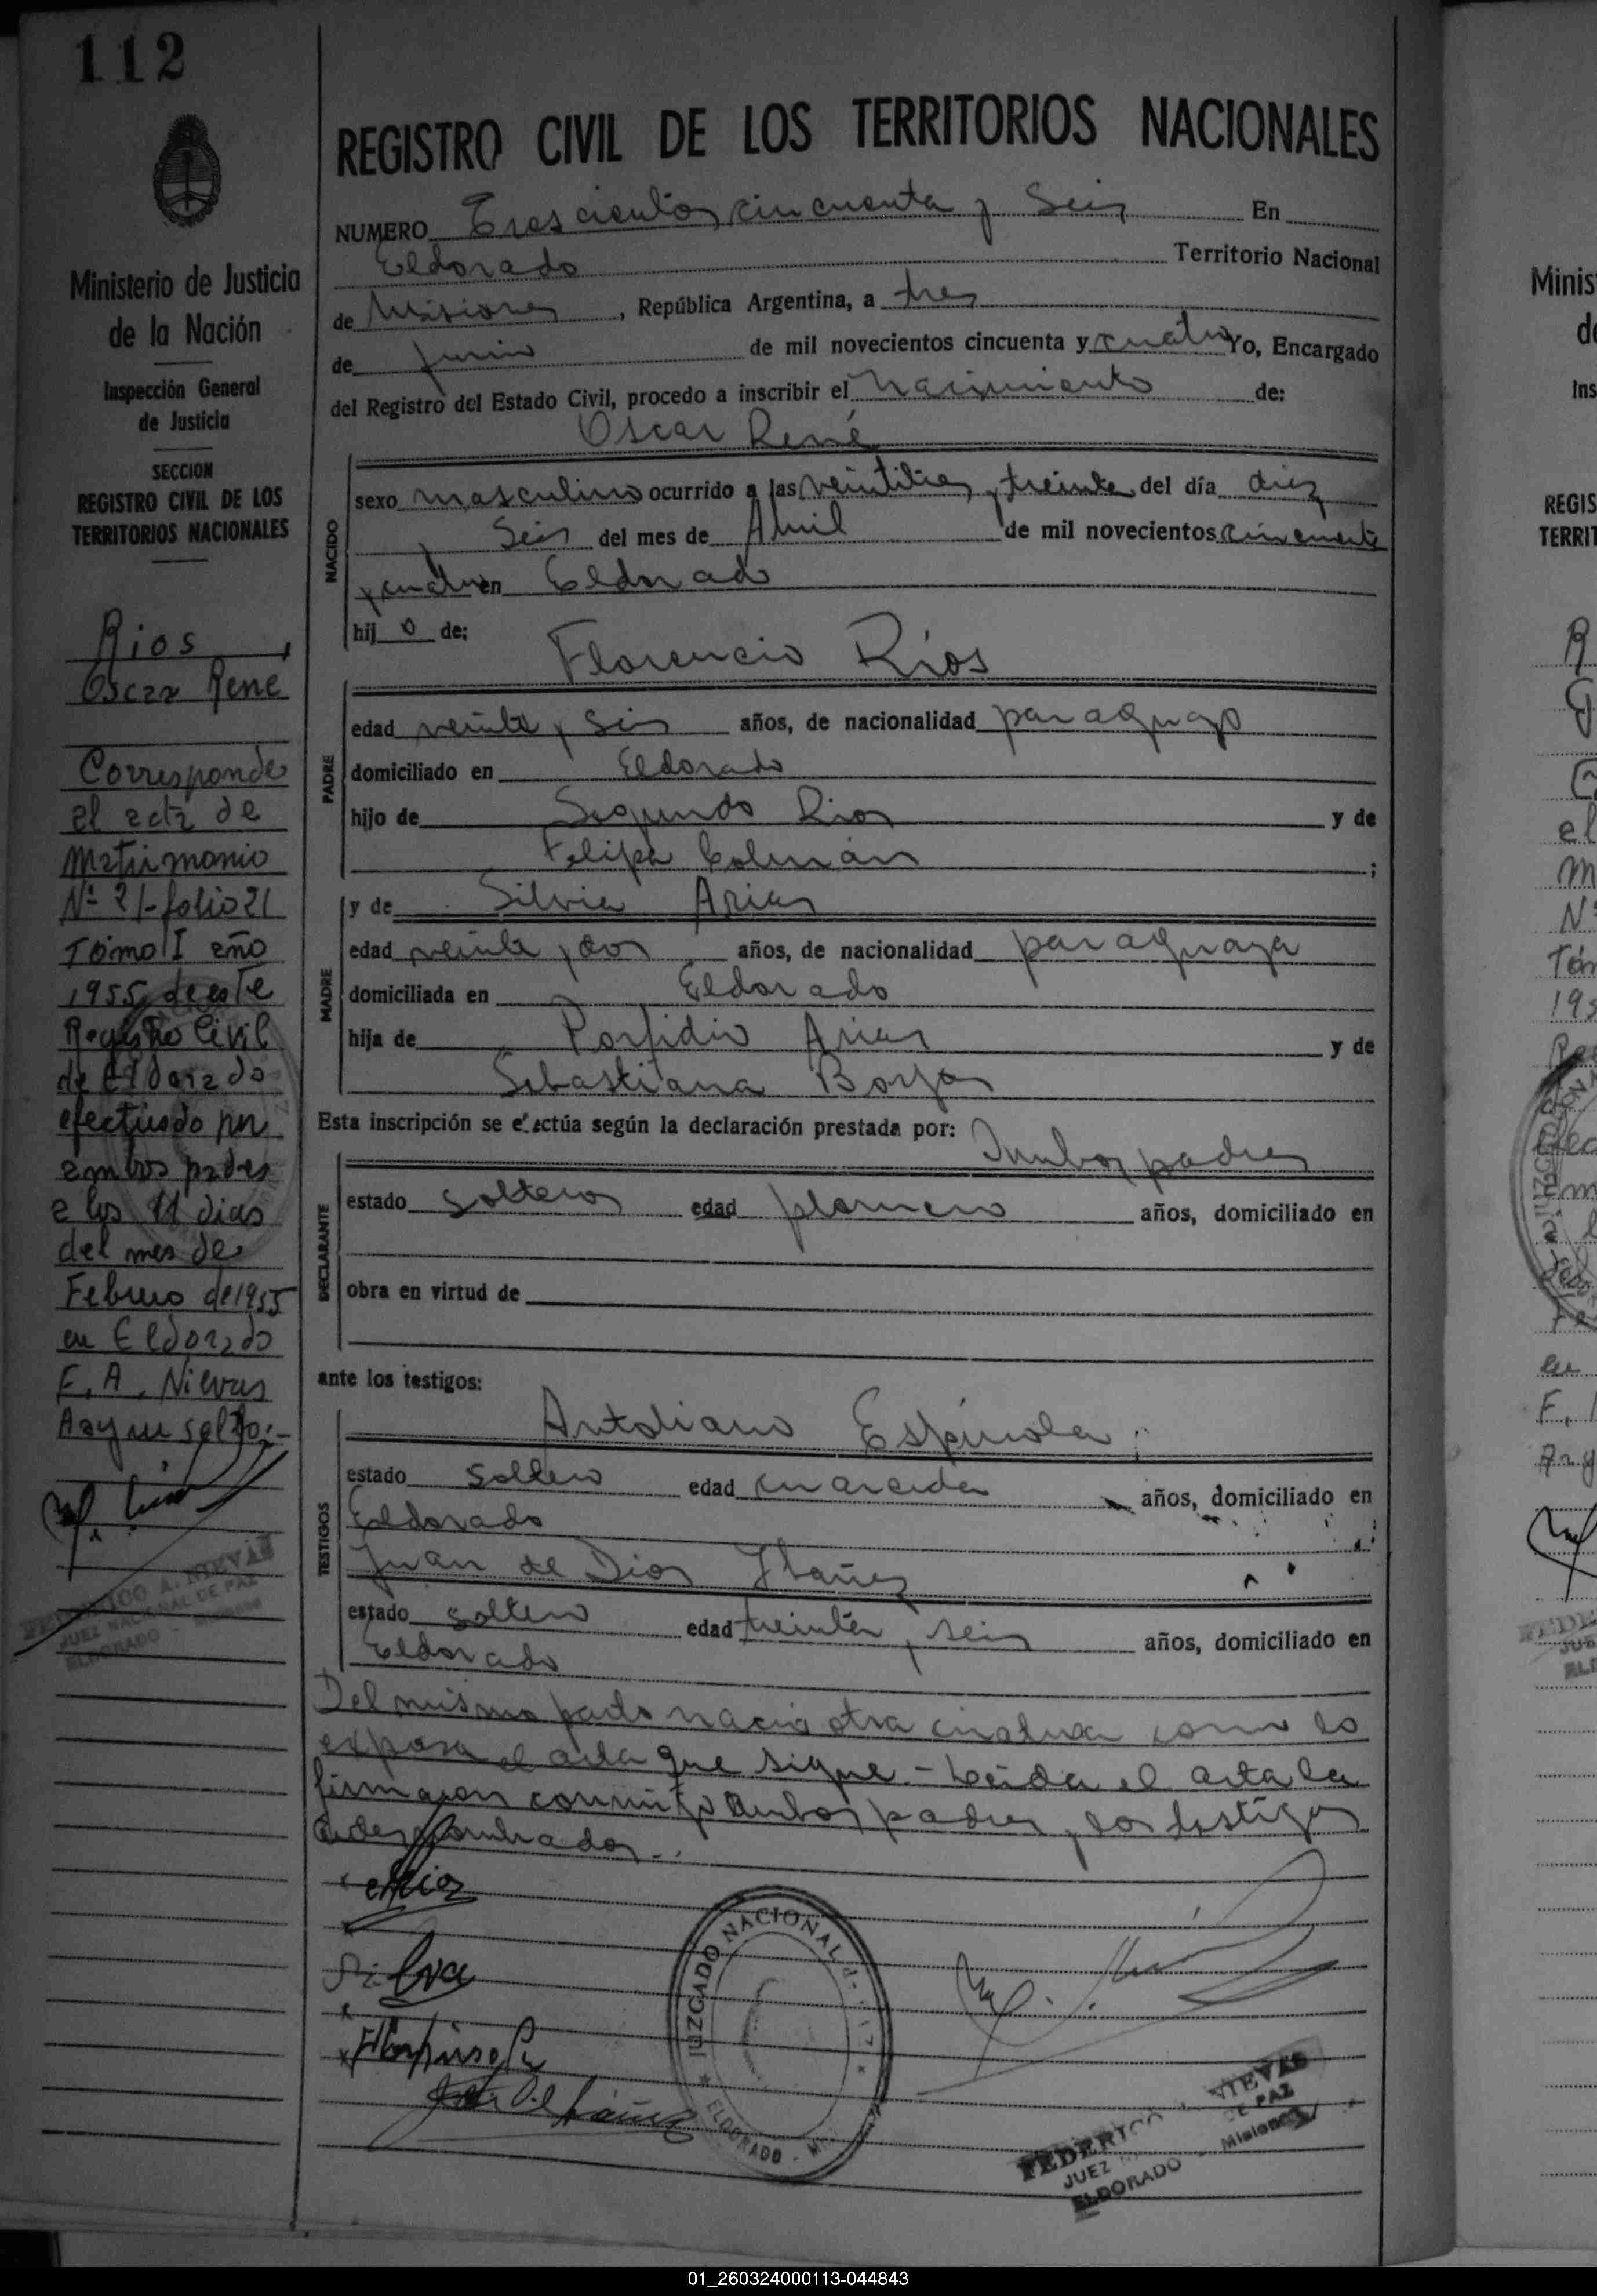 112
Ministerio de Justicia
de la Nación
Inspección General
de Justicia
SECCION
REGISTRO CIVIL DE LOS
TERRITORIOS NACIONALES
Rios,
Oscar René
Corresponde
el acta de
Matrimonio
Nº 21-folio 21
Tomo I año
1955, de este
Registro Civil
de Eldorado
efectuado por
ambos padres
a los 11 dias
del mes de
Febrero de 1955
en Eldorado
F. A. Nievas
FEDERICO A. NIEVAS
JUEZ NACIONAL DE PAZ
ELDORADO - Misiones
REGISTRO CIVIL DE LOS TERRITORIOS NACIONALES
NUMERO Trescientos cincuenta y Seis En
Eldorado Territorio Nacional
de Misiones, República Argentina, a tres
de Junio de mil novecientos cincuenta y cuatro Yo, Encargado
del Registro del Estado Civil, procedo a inscribir el nacimiento de:
Oscar René
NACIDO
sexo masculino ocurrido a las veintitres y treinta del día diez
y Seis del mes de Abril de mil novecientos cincuenta
y cuatro en Eldorado
hijo de:
Florencio Ríos
PADRE
edad veinte y seis años, de nacionalidad paraguayo
domiciliado en Eldorado
hijo de Segundo Rios y de
Felipa Colmán;
MADRE
y de Silvia Arias
edad veinte y dos años, de nacionalidad paraguaya
domiciliada en Eldorado
hija de Porfidio Arias y de
Sebastiana Borja
Esta inscripción se efectúa según la declaración prestada por:
Ambos padres
DECLARANTE
estado solteros edad años, domiciliado en
obra en virtud de
ante los testigos:
TESTIGOS
Antoliano Espínola;
estado soltero edad cuarenta años, domiciliado en
Eldorado
Juan de Dios Ibañez
estado soltero edad treinta y seis años, domiciliado en
Eldorado
Del mismo parto nació otra criatura como lo
expresa el acta que sigue.- Leída el acta la
firmaron conmigo ambos padres y los testigos
antes nombrados.
JUZGADO NACIONAL
ELDORADO
FEDERICO NIEVAS
JUEZ DE PAZ
ELDORADO Misiones
01_260324000113-044843